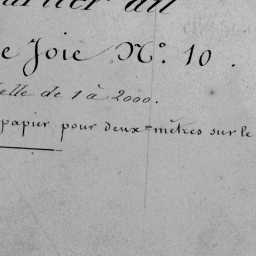 du
e Joie N° 10.
elle de 1 à 2000.
papier pour deux=mètres sur le